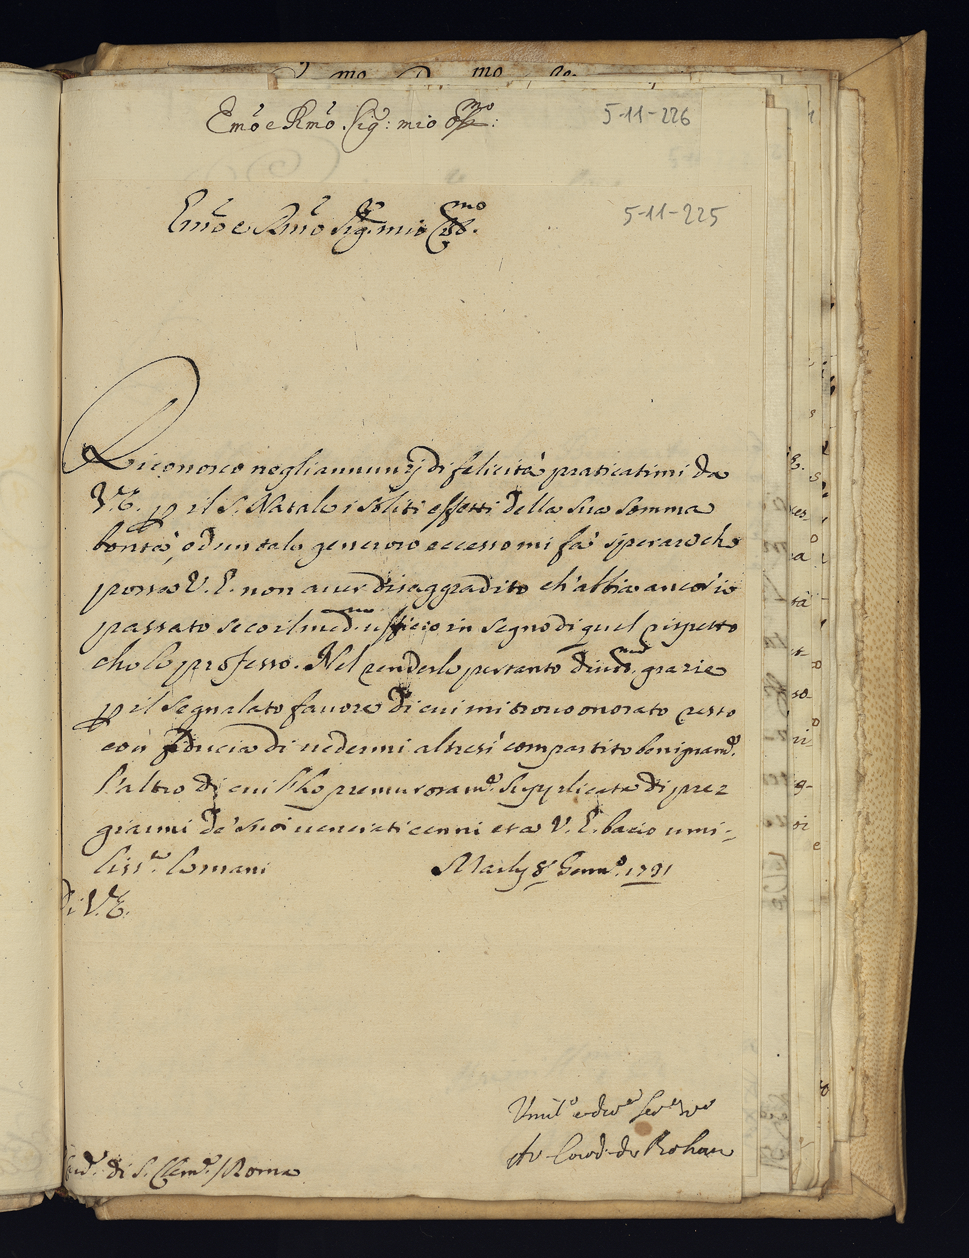 Emo e Rmo Sig: mio
5-11-226
Emo e Rmo Sig. mio
5-11-225
Riconosco negli annunzj di felicità praticatimi da
V.E. p il S. Natale i soliti effetti della sua somma
bontà, ed un tale generoso eccesso mi fà sperare che
possa V.E. non aver disaggradito ch'abbia ancor'io
passato seco il med.mo ufficio in segno di quel rispetto
che le professo. Nel renderle pertanto grazie
p il segnalato favore di cui mi trovo onorato resto
con fiducia di vedermi altresi compartito benignam.e
l'altro di cui l'ho premurosam.e supplicata di prez
giarmi de' suoi venerati cenni et a V.E. bacio umi-
liss.te le mani Marly 8 Genn.o
di V.E.
Umil.o e
Card. de Rohan
di S. Clem.e / Roma